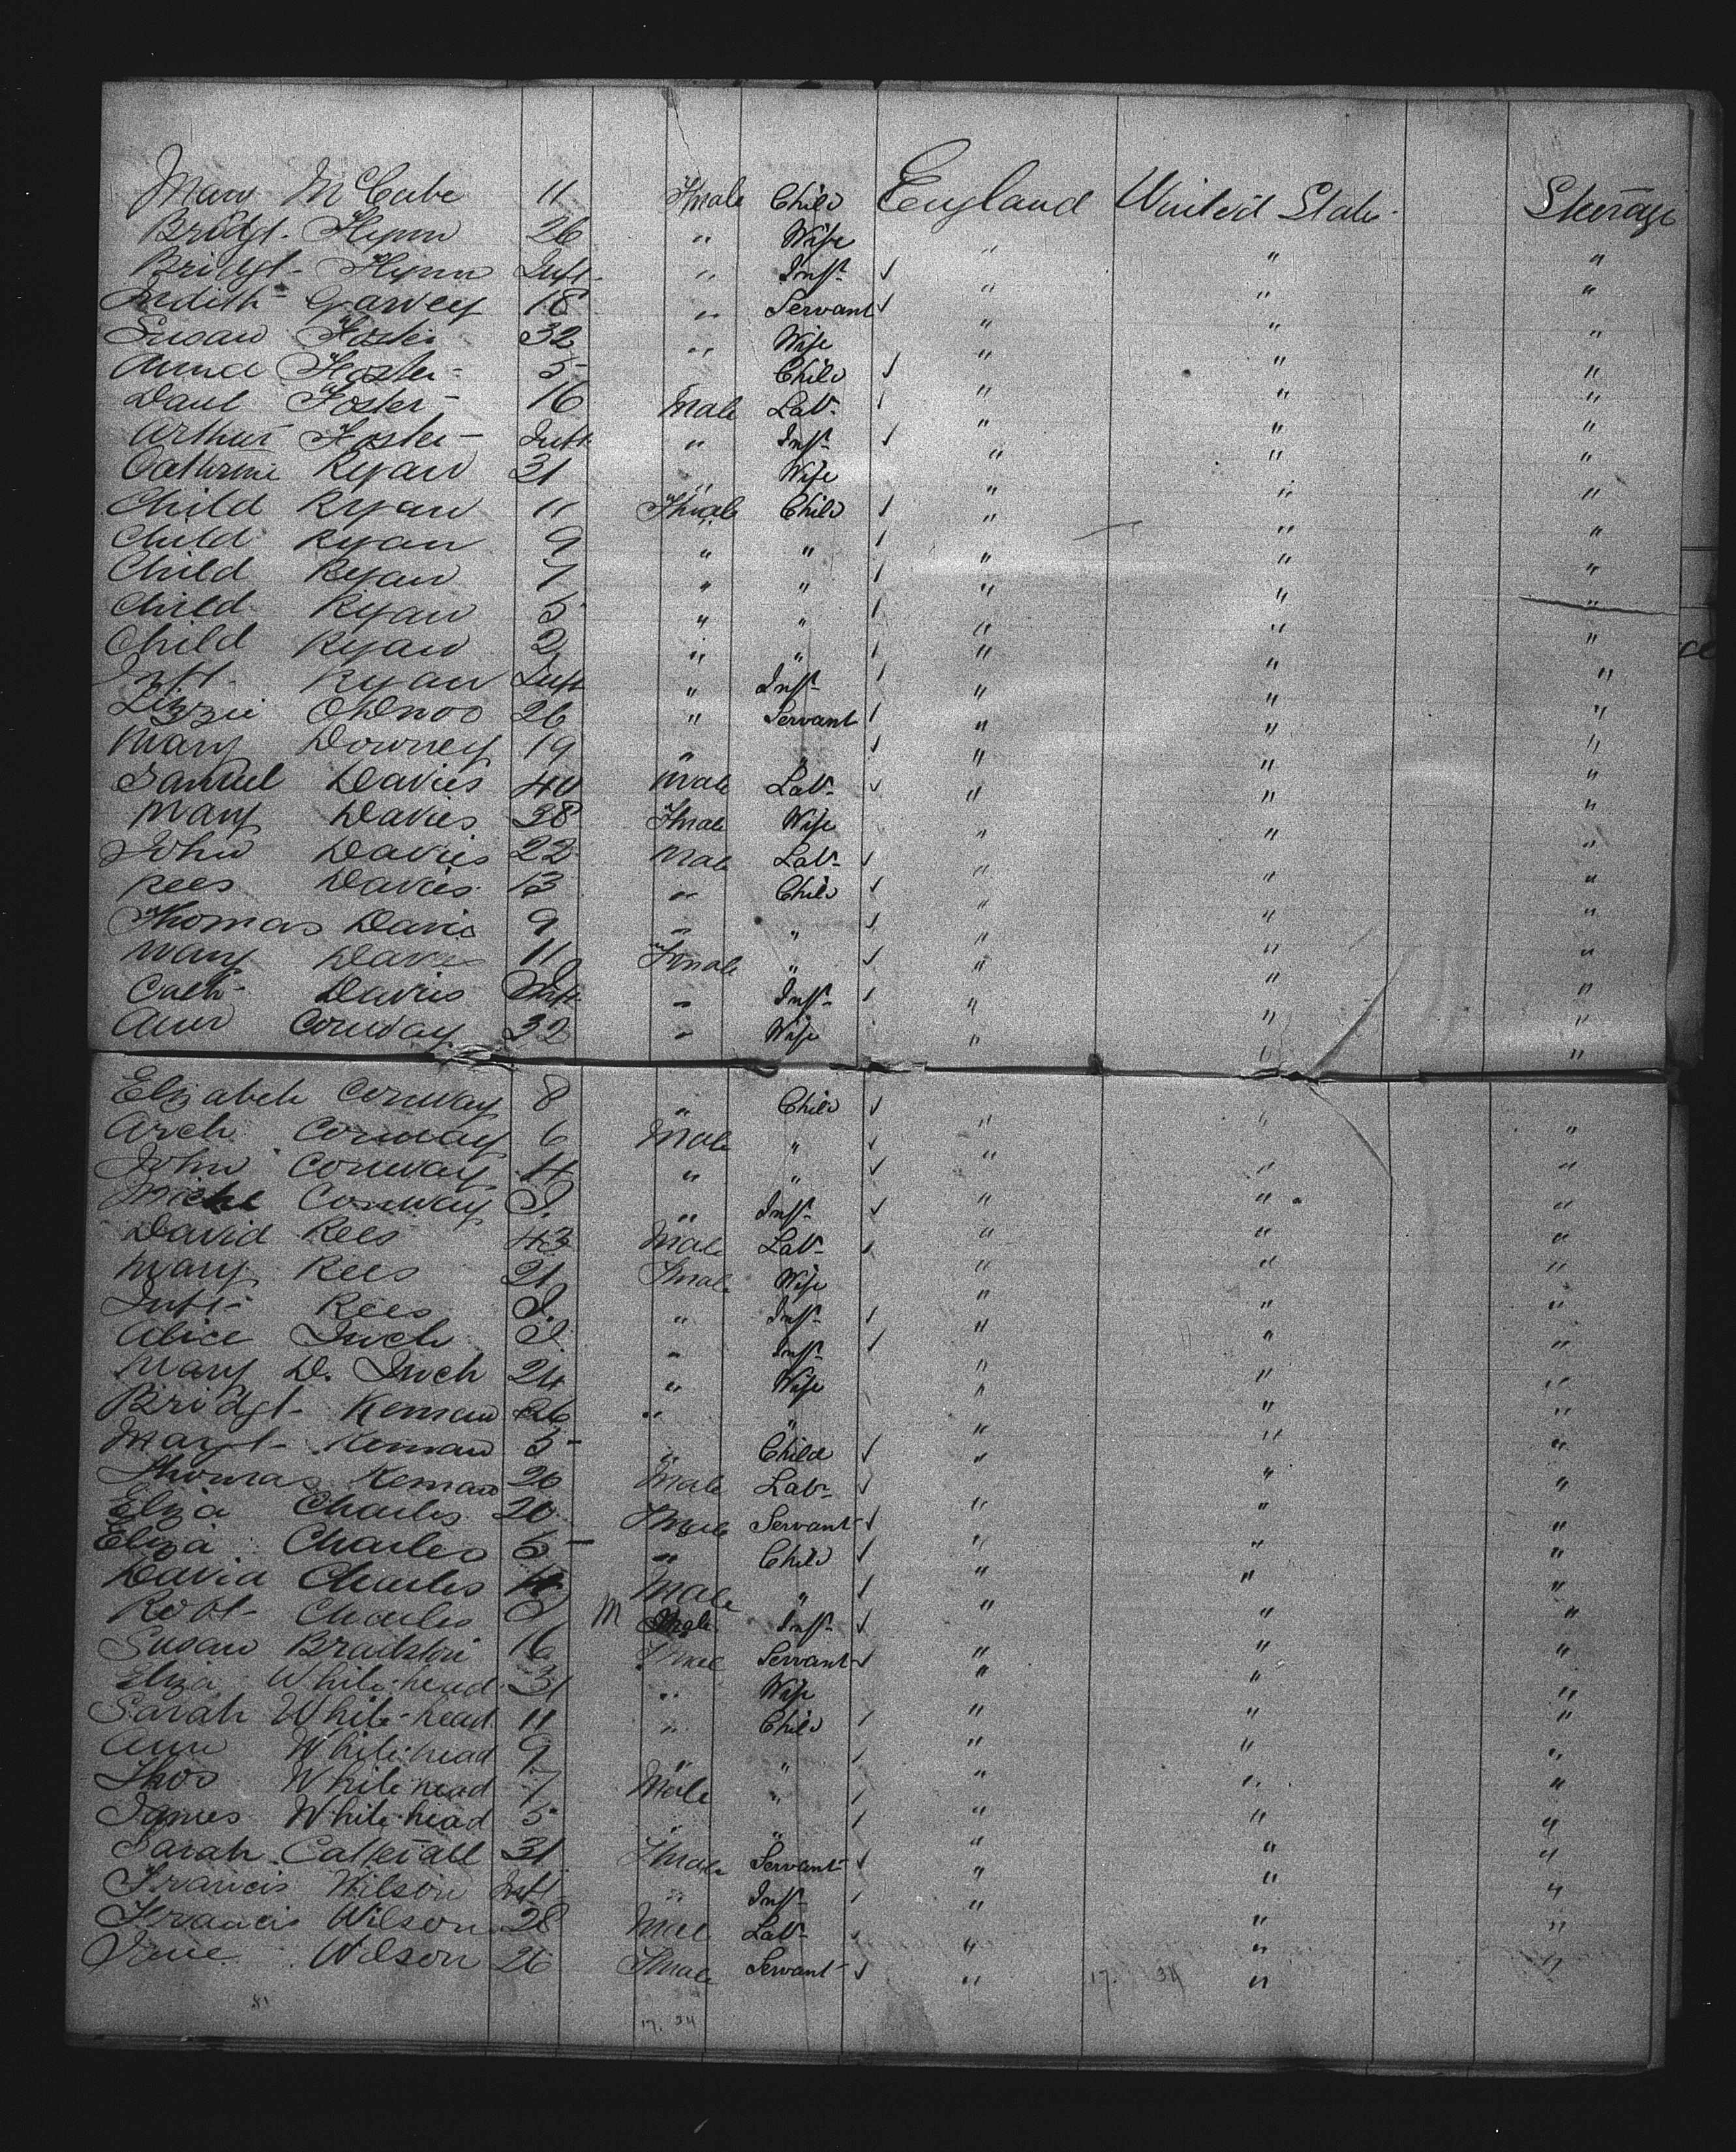 Mary McCabe 11 Fmale Child England United States Steerage
Bridgt. Flynn 26 " Wife " " "
Bridgt- Flynn Inft. " Inft- ✓ " " "
Judith Garvey 18 " Servant ✓ " " "
Susan Foster 32 " Wife " " "
Annie Foster- 5- Child ✓ " " "
Danl Foster- 16 Male Lab- ✓ " " "
Arthur Foster- Inft " Inft- ✓ " " "
Catherine Ryan 31 " Wife " " "
Child Ryan 11 Fmale Child ✓ " " "
Child Ryan 9 " " ✓ " " "
Child Ryan 7 " " ✓ " " "
Child Ryan 5 " " ✓ " " "
Child Ryan 2 " " ✓ " " "
Inft- Ryan Inft " Inft- ✓ " " "
Lizzie 26 " Servant ✓ " " "
Mary Downey 19 " " ✓ " " "
Samuel Davies 40 Male Lab- ✓ " " "
Mary Davies 38 Fmale Wife " " "
John Davies 22 Male Lab- ✓ " " "
Rees Davies 13 " Child ✓ " " "
Thomas Davis 9 " " ✓ " " "
Mary Davies 11 Female " ✓ " " "
Cath- Davies Inft " Inft- ✓ " " "
Ann Conway 32 " Wife " " "
Elizabeth Conway 8 " Child ✓ " " "
Arch Conway 6 Male " ✓ " " "
John Conway 4 " " ✓ " " "
Michl Conway I. " Inft- ✓ " " "
David Rees 43 Male Lab- ✓ " " "
Mary Rees 21 Fmale Wife " " "
Inft- Rees I. " Inft- ✓ " " "
Alice Inch I. " Inft- ✓ " " "
Mary D. Inch 24 " Wife " " "
Bridgt- Kernan 26 " " " " "
Margt- Kernan 5- " Child ✓ " " "
Thomas Kernan 26 Male Lab- ✓ " " "
Eliza Charles 20 Fmale Servant ✓ " " "
Eliza Charles 5- " Child ✓ " " "
David Charles 4 Male " ✓ " " "
Robt- Charles I M Male Inft- ✓ " " "
Susan 16 Fmale Servant ✓ " " "
Eliza White-head 31 " Wife " " "
Sarah White-head 11 " Child ✓ " " "
Ann White-head 9 " " ✓ " " "
Thos White-head 7 Male " ✓ " " "
James White-head 5 " " ✓ " " "
Sarah Catterall 31 Fmale Servant ✓ " " "
Francis Wilson Inft " Inft- ✓ " " "
Francis Wilson 28 Male Lab- ✓ " " "
Jane Wilson 26 Fmale Servant ✓ " " "
17. 34
17. 34